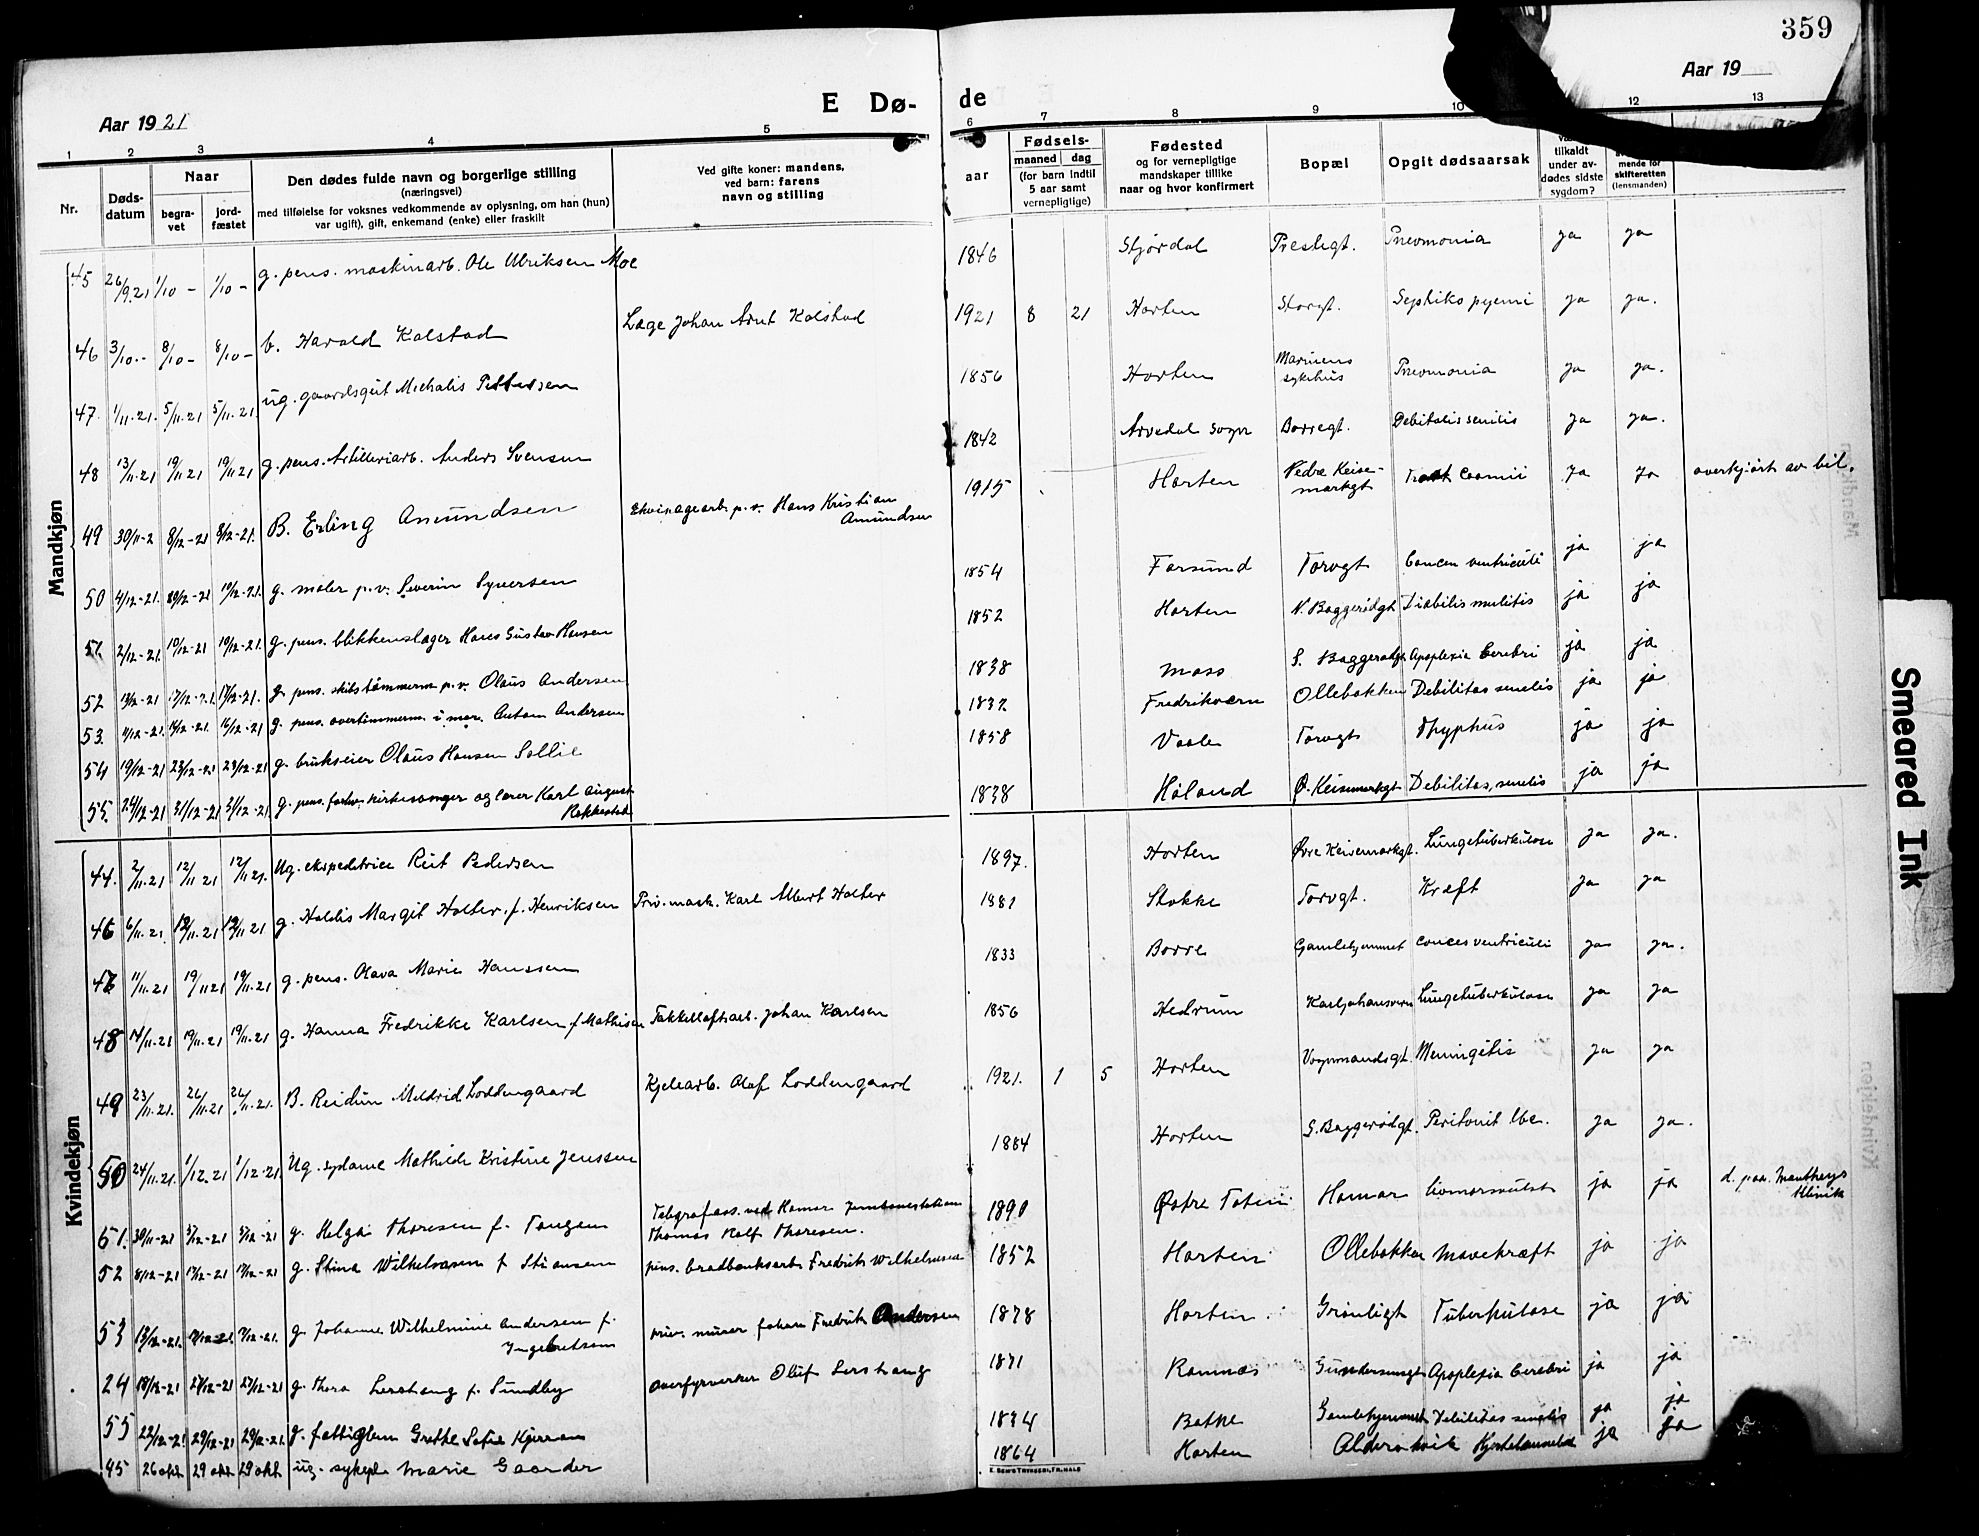 359
Aar 1921
E Dø-
de
Aar 19
1 2 3 4 5
6 7 8 9 10 12 13
Nr.
Døds-
datum
Naar
begra-
vet
jord-
fæstet
Den dødes fulde navn og borgerlige stilling
(næringsvei)
med tilføielse for voksnes vedkommende av oplysning, om han (hun)
var ugift), gift, enkemand (enke) eller fraskilt
Ved gifte koner: mandens,
ved barn: farens
navn og stilling
aar
Fødsels-
maaned dag
(for barn indtil
5 aar samt
vernepligtige)
Fødested
og for vernepligtige
mandskaper tillike
naar og hvor konfirmert
Bopæl
Opgit dødsaarsak
tilkaldt
under av-
dødes sidste
sygdom?
mende for
skifteretten
(lensmanden)
Mandkjøn
45 26/9.21 1/10 - 1/10 - g. pens. maskinarb. Ole Ulriksen Moe 1846 Stjørdal Prestegt. Pneomonia ja ja
46 3/10 - 8/10 - 8/10 - b. Harald Kolstad Læge Johan Arnt Kolstad 1921 8 21 Horten Storgt. ja ja.
47 1/11.21. 5/11.21 5/11.21. ug. gaardsgut Michalis Pettersen 1856 Horten Marinens sykehus Pneomonia ja ja.
48 13/11.21 19/11 21 19/11 21 g. pens. Artilleriarb. Anders Svensen 1842 Arvedal sogn Borregt. Debitalis senilis ja ja.
49 30/11-2 8/12-21 8/12-21. B. Erling Amundsen Ekvipagearb. p.v. Hans Kristian Amundsen 1915 Horten Nedre Keisemarkgt ja ja overkjørt av bil.
50 4/12-21. 10/12-21. g. maler p.v. Severin Syversen 1854 Farsund Torvgt Cancer ventriculi ja ja
51. 2/12-21. 10/12-21 10/12-21. g. pens. blikkenslager Hans Gustav Hansen 1852 Horten N. Baggerødgt Diabilis mulitis ja ja
52 13/12-21 17/12-21 17/12-21. g. pens. skibstømmerm. p.v. Olaus Andersen 1838 Moss S. Baggerødgt Apoplexia Cerebri ja ja
53. 11/12-21. 16/12-21. 16/12-21 g. pens. overtømmerm. i mar. Anton Andersen 1837 Fredriksværn Ollebakken Debilitas senelis ja ja
54 19/12-21 23/12-21 23/12-21 g. brukseier Olaus Hansen Sollie 1858 Vaale Torvgt Thyphus ja ja
55. 24/12-21 31/12-21 31/12-21 g. pens. forhv. kirkesanger og lærer Karl August Rakkestad 1838 Høland Ø. Keisemarkgt Debilitas senelis ja ja
Kvindekjøn
44. 2/11.21 12/11 21 12/11 21. Ug. ekspeditrice Rut Pedersen 1897. Horten Øvre Keisemarkgt. Lungetuberkulose ja ja.
46 6/11.21. 12/11.21 12/11 21 g. Haldis Margit Holter. f. Henriksen Priv. mask. Karl Albert Holter 1881 Stokke Torvgt. Kræft ja ja
47 11/11.21 19/11 21 19/11.21 g. pens. Olava Marie Hanssen 1833 Borre Gamlehjemmet cances ventriculi ja ja.
48 14/11.21 19/11.21 19/11.21 g. Hanna Fredrikke Karlsen f. Mathisen Takkelloftsarb. Johan Karlsen 1856 Hedrum Karljohansvern Lungetuberkulose ja ja
49 23/11.21. 26/11.21 26/11.21. B. Reidun Meldrid Loddengaard Kjelearb. Olaf Loddengaard 1921. 1 5 Horten Vognmandsgt. Meningitis ja ja
50 24/11.21. 1/12.21 1/12-21 Ug. sydame Mathilde Kristine Jenssen 1884 Horten S. Baggerødgt. Peritonit tbc. ja ja.
51. 30/11-21 5/12-21 5/12-21 g. Helga Thoresen f. Tangen Telegrafass. ved Hamar jernbanestation Thomas Rolf Thoresen. 1890 Østre Toten Hamar ja ja d. paa. Mantheys Klinik
52 8/12-21 g. Stina Wilhelmsen f. Stiansen pens. brødbanksarb. Fredrik Wilhelmsen 1852 Horten Ollebakken Mavekræft ja ja
53 13/12-21. g. Johanne Wilhelmine Andersen f. Ingebretsen priv. murer Johan Fredrik Andersen 1878 Horten Grønligt Tuberkulose ja ja
24 18/12-21 27/12-21 27/12-21 g. Thora Lerstang f. Sundby Overfyrverker Oluf Lerstang 1871 Ramnæs Gundersensgt Apoplexia Cerebri ja ja
55 22/12-21. 29/12-21 29/12-21. g. fattiglem Grethe Sofie 1834 Botke Gamlehjemmet Debilitas senelis ja ja
45 26 okt 29 okt 29 okt ug. sykepl. Marie Gaarder 1864 Horten ja ja
Smeared Ink